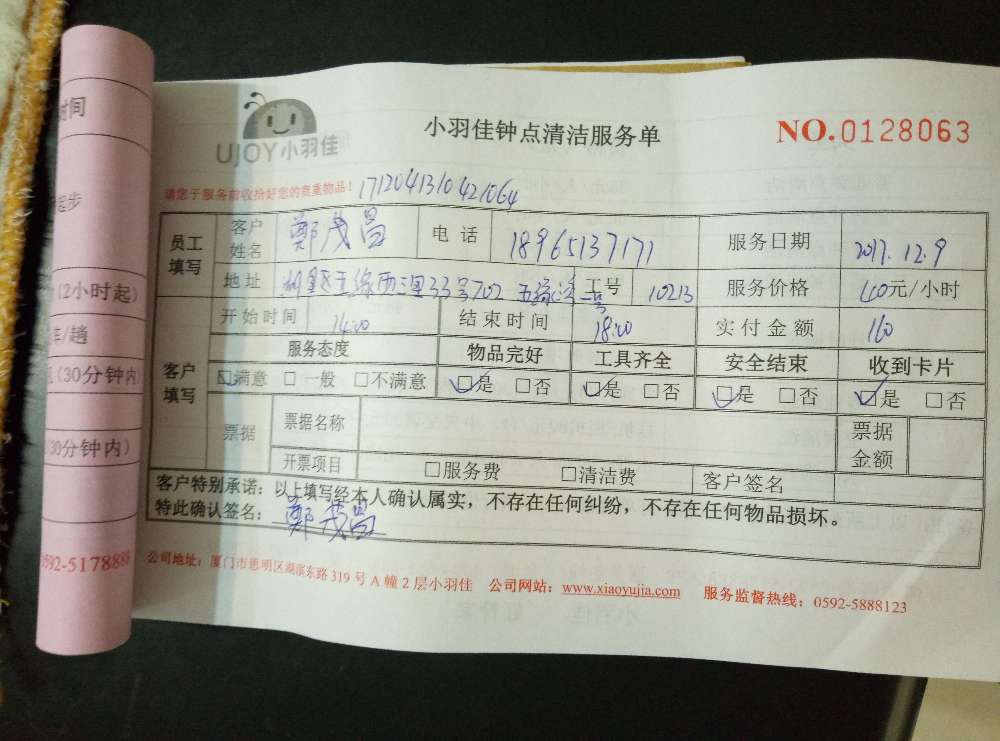 时间
起步
(2小时起)
车/趟
(30分钟内
30分钟内)
0592-5178888
UJOY小羽佳
小羽佳钟点清洁服务单
NO.0128063
请您于服务前收拾好您的贵重物品!
1712041310421064
员工填写 客户姓名 鄭茂昌 电话 18965137171 服务日期 2017.12.9
地址 五缘西二里33号702 五缘湾一号 工号 10213 服务价格 40元/小时
客户填写 开始时间 14:00 结束时间 18:00 实付金额 160
服务态度 物品完好 工具齐全 安全结束 收到卡片
☑满意 □一般 □不满意 ☑是 □否 ☑是 □否 ☑是 □否 ☑是 □否
票据 票据名称 票据金额
开票项目 □服务费 □清洁费 客户签名
客户特别承诺:以上填写经本人确认属实,不存在任何纠纷,不存在任何物品损坏。
特此确认签名: 鄭茂昌
公司地址:厦门市思明区湖滨东路319号A幢2层小羽佳 公司网站:www.xiaoyujia.com 服务监督热线:0592-5888123